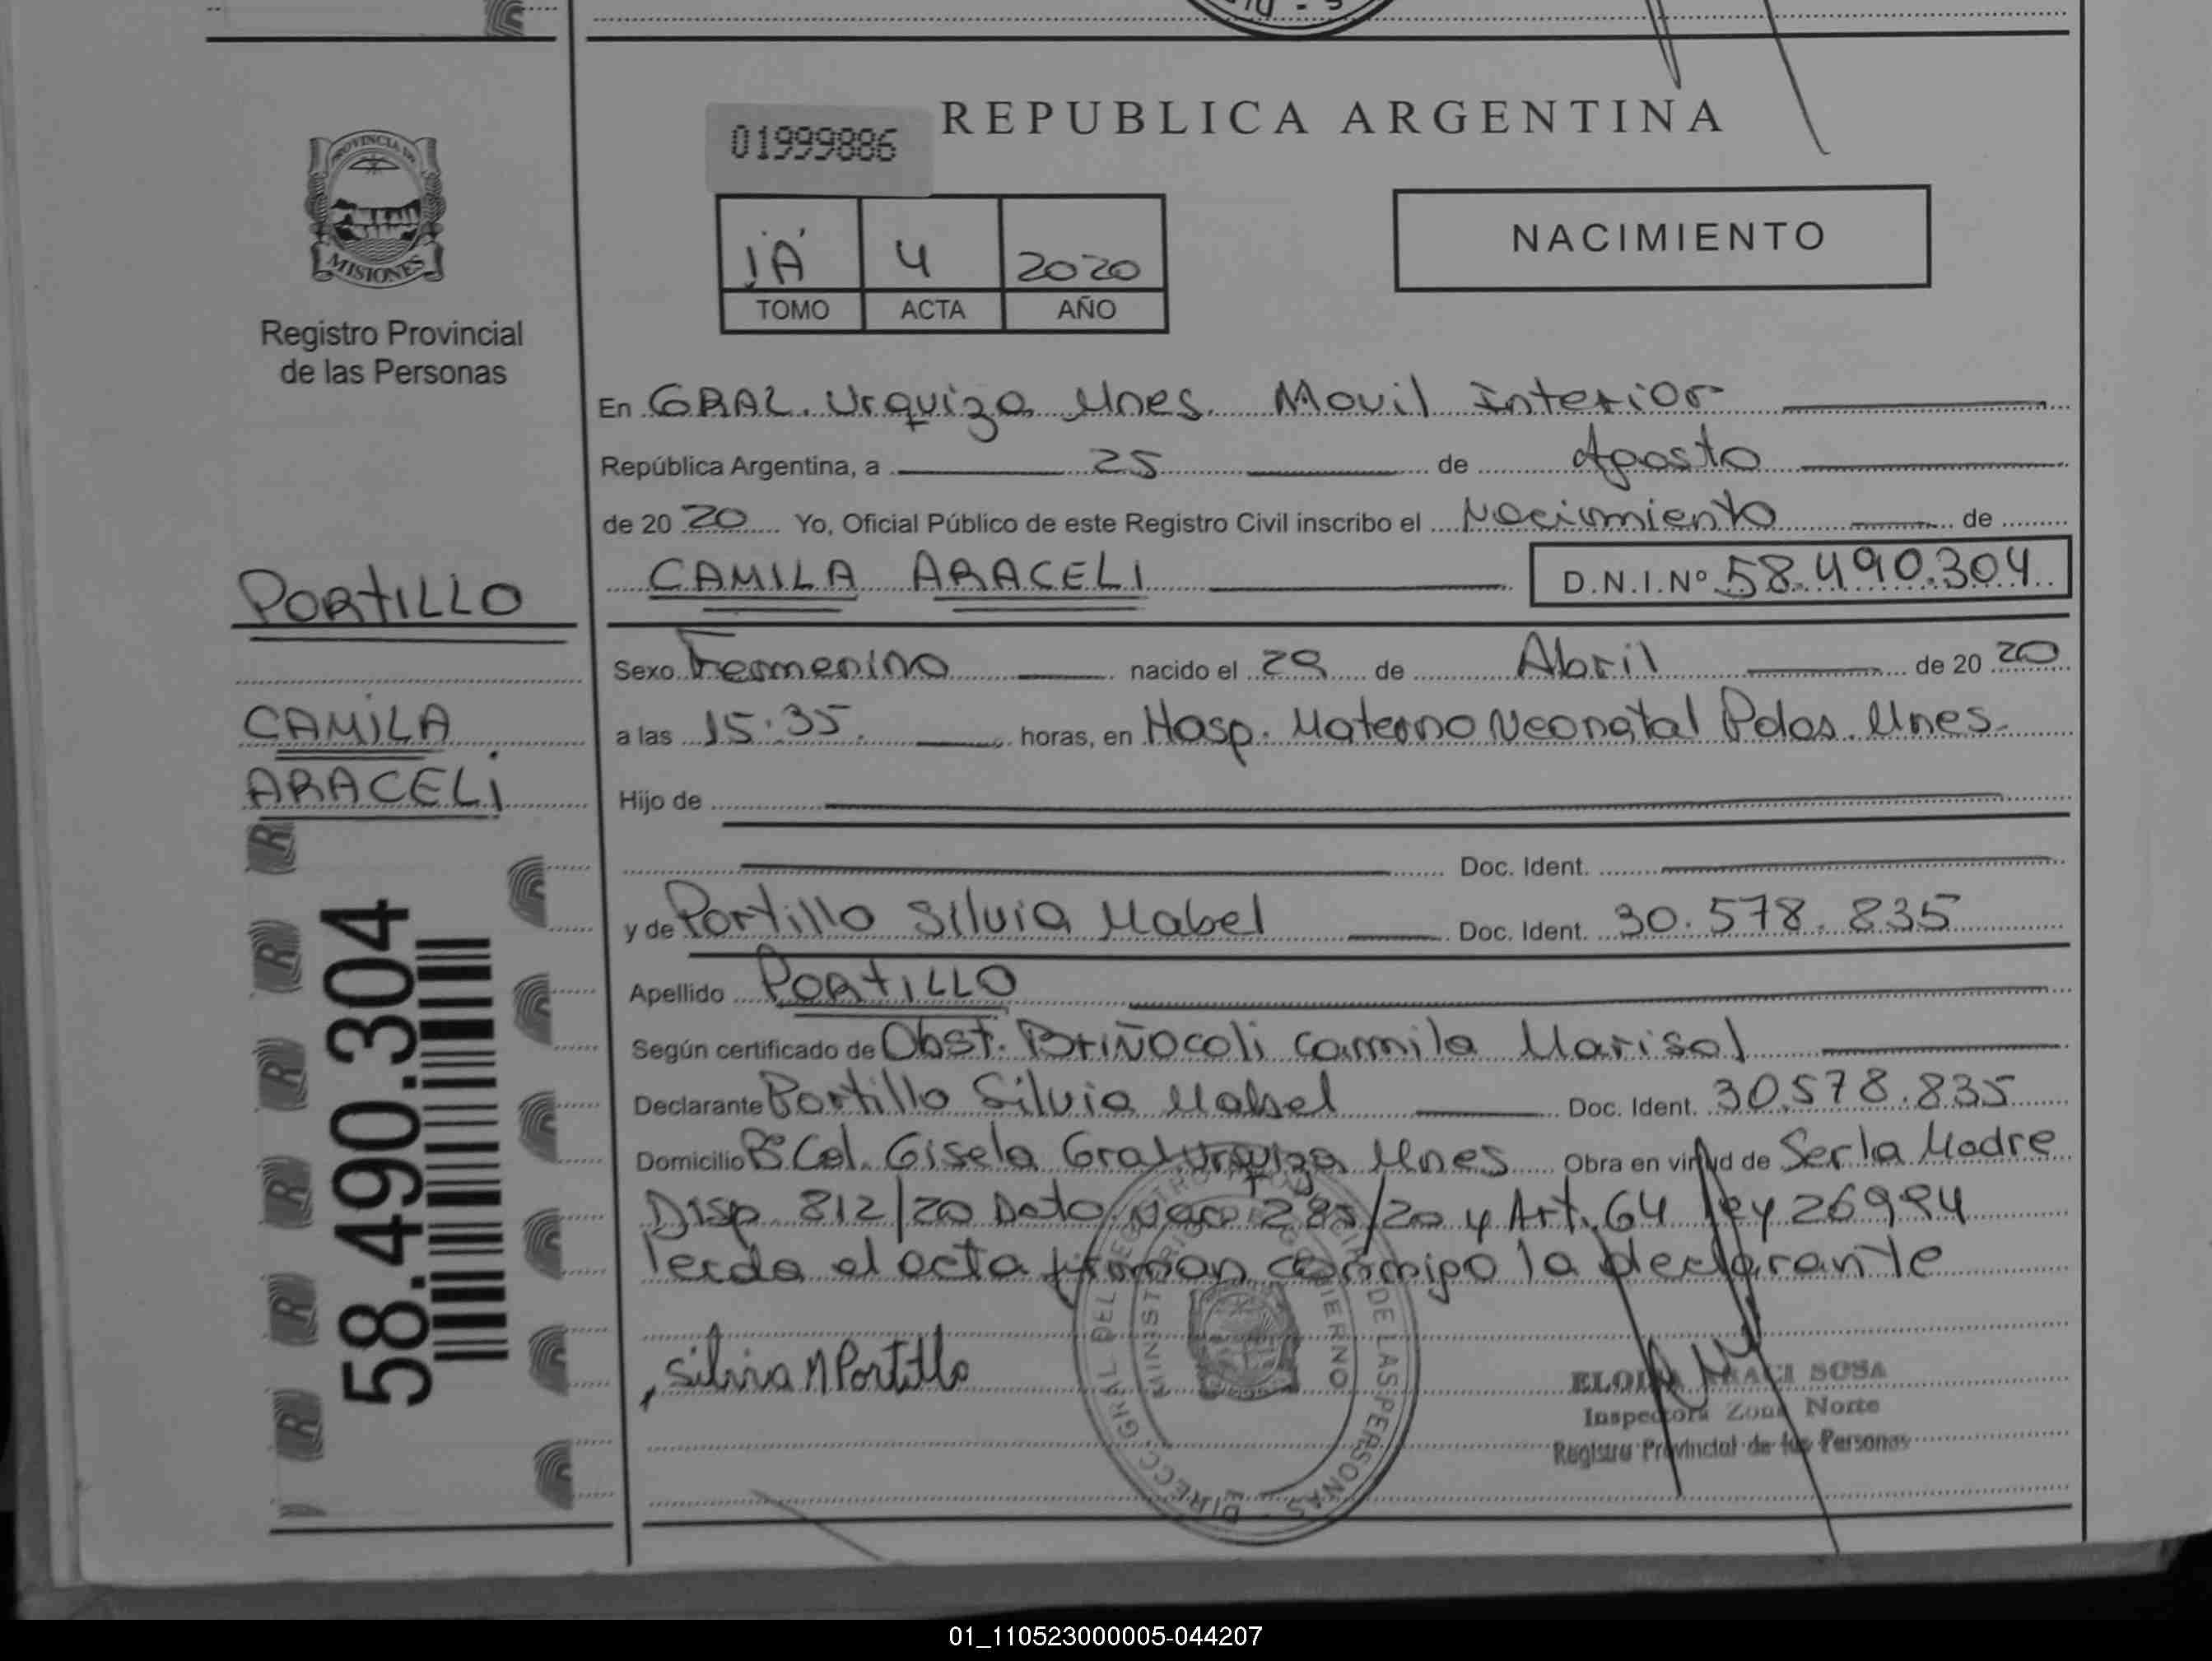 REPUBLICA ARGENTINA
01999886
1A 4 2020
TOMO ACTA AÑO
NACIMIENTO
PROVINCIA DE
MISIONES
Registro Provincial
de las Personas
PORTILLO
CAMILA
ARACELI
58.490.304
En GRAL. Urquiza Mnes. Movil Interior
República Argentina, a 25 de Agosto
de 20 20 Yo, Oficial Público de este Registro Civil inscribo el Nacimiento de
CAMILA ARACELI D.N.I.Nº 58.490.304
Sexo Femenino nacido el 29 de Abril de 20 20
a las 15:35. horas, en Hosp. Materno Neonatal Pdas. Mnes.
Hijo de
Doc. Ident.
y de Portillo Silvia Mabel Doc. Ident. 30.578.835
Apellido PORTILLO
Según certificado de Obst. Briñocoli Camila Marisol
Declarante Portillo Silvia Mabel Doc. Ident. 30.578.835
Domicilio Bº Col. Gisela Gral Urquiza Mnes Obra en virtud de Ser la Madre
Disp 812/20 /20 y Art. 64 ley 26994
leida el acta firman conmigo la declarante
Silvia M Portillo
DIRECC. GRAL. DEL REGISTRO DE LAS PERSONAS
MINISTERIO GOBIERNO
SOSA
Inspectora Zona Norte
Registro Provincial de las Personas
01_110523000005-044207